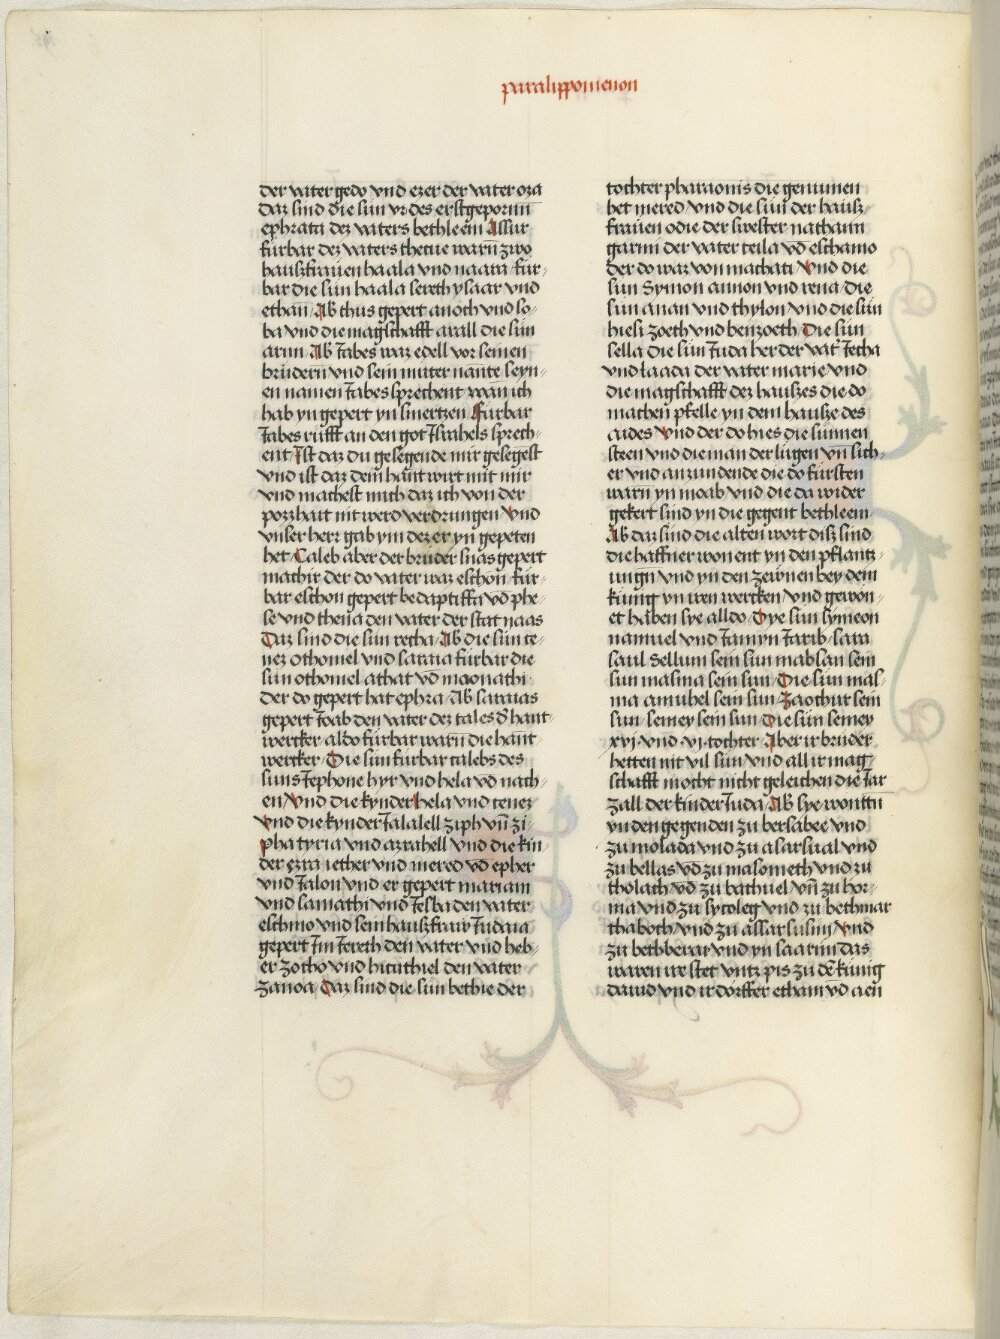 paralippomenon
der vater gedo vnd ezer der vater oza
daz sind die sün vr des erstgepornn
ephrata dez vaters bethleem Assur
fürbar dez vaters thecue warn̄ zwo
hauszfraüen haala vnd naara für-
bar die sün haala sereth ysaar vnd
ethan Ab thus gepert anoth vnd so-
ba vnd die magschafft arall die sün
arim Ab Iabes waz edell vor seinen
brüdern vnd sein muter nante seyn-
en namen Iabes sprechent wan ich
hab yn gepert yn smertzen Fürbar
Iabes rüfft an den got Israhels sprech-
ent Ist daz du gesegende mir gesegest
vnd ist daz dein hant wirt mit mir
vnd machest mich daz ich von der
pozzhait nit werd verdrungen Vnd
vnser herr gab ym dez er yn gepeten
het Caleb aber der brüder suas gepert
machir der do vater waz eschon für-
bar eschon gepert bedaptiffa vd̄ phe-
se vnd thena den vater der stat naas
Daz sind die sün recha Ab die sün ce-
nez othoniel vnd saraia fürbar die
sün othoniel athat vd̄ maonathi
der do gepert hat ephra Ab saraias
gepert Ioab den vater dez tales d̄ hant-
wercker aldo fürbar warn̄ die hant-
wercker Die sün fürbar calebs des
suns Iephone hyr vnd hela vd̄ nach-
en Vnd die kynder hela vnd cenez
Vnd die kynder Ialalell ziph vn̄ zi-
pha tyria vnd azrahell vnd die kin-
der ezra iether vnd mered vd̄ epher
vnd Ialon vnd er gepert mariam
vnd samathi vnd Iesba den vater
eschmo vnd sein hauszfraw Iudaia
gepert Im Iereth den vater vnd heb-
er zotho vnd hicuthiel den vater
zanoa Daz sind die sün bethie der
tochter pharaonis die genumen
het mered vnd die sün der hausz-
fraüen odie der swester nathaim
garmi der vater ceila vd̄ eschamo
der do waz von machati Vnd die
sün Symon annon vnd rena die
sün anan vnd thylon vnd die sün
hiesi zoeth vnd benzoeth Die sün
sella die sün Iuda her der vat̄ Iecha
vnd laada der vater marie vnd
die magschafft dez hauszes die do
machen pfelle yn dem hausze des
aides Vnd der do hies die sunnen
steen vnd die man der lügen vn̄ sich-
er vnd anzundende die do fürsten
warn̄ yn moab vnd die da wider
gekert sind yn die gegent bethleem
Ab daz sind die alten wort disz sind
die haffner wonent yn den pflantz-
ungn̄ vnd yn den zewnen bey dem
künig yn iren wercken vnd gewon-
et haben sye alldo Dye sün symeon
namuel vnd Iamyn Iarib sara
saul Sellum sein sun mabsan sein
sun masma sein sun Die sün mas-
ma amuhel sein sun Zaochur sein
sun semey sein sun Die sün semey
xvi vnd vi tochter Aber ir brüder
hetten nit vil sün vnd all ir mag-
schafft mocht nicht geleichen die Iar
zall der kinder Iuda Ab sye wontn̄
yn den gegenden zu bersabee vnd
zu molada vnd zu asarsual vnd
zu bellas vd̄ zu masometh vnd zu
tholath vd̄ zu bathuel vn̄ zu hor-
ma vnd zu syceleg vnd zu bethmar
thaboth vnd zu assarsusim Vnd
zu bethberai vnd yn saarim das
waren ire stet vntz pis zu dē künig
dauid vnd ir dörffer etham vd̄ aen